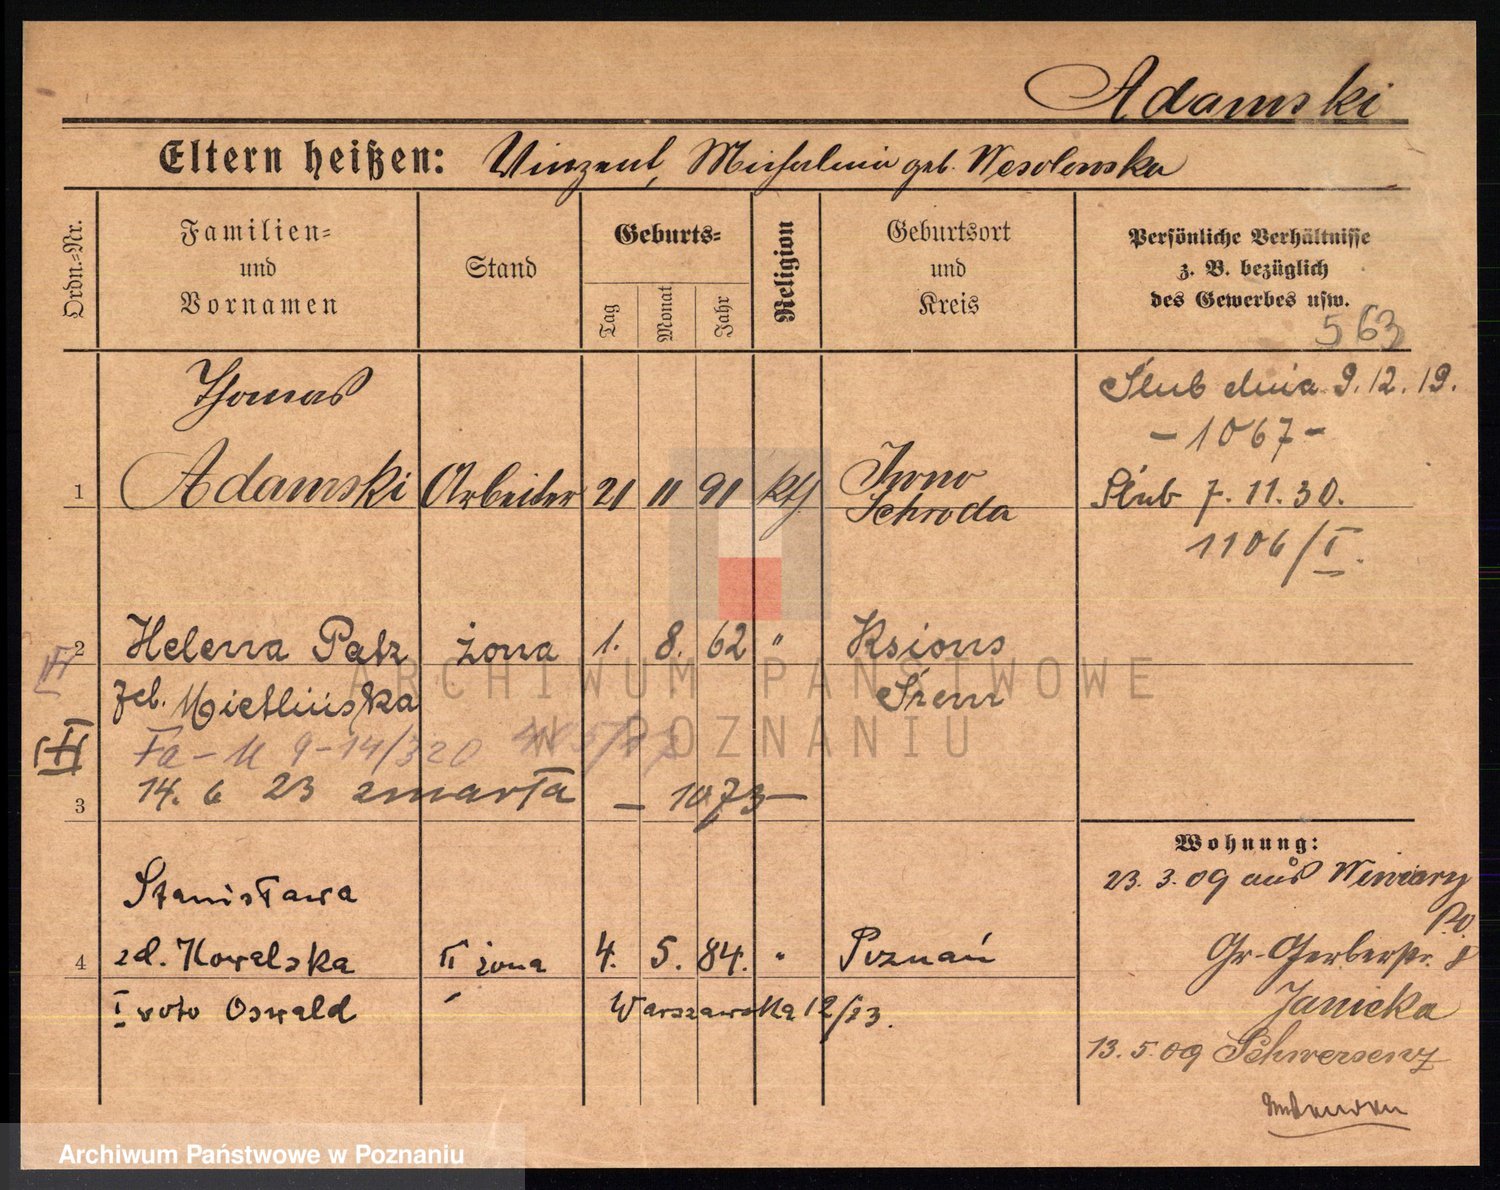 Adamski
Eltern heißen: Vinzent, Michalina geb. Wesolowska
Ordn.=Nr.
Familien=
und
Vornamen
Stand
Geburts=
Tag
Monat
Jahr
Religion
Geburtsort
und
Kreis
Persönliche Verhältnisse
z. B. bezüglich
des Gewerbes usw.
563
Thomas
1 Adamski Arbeiter 21 11 91 kth
Iwno
Schroda
Ślub dnia 9.12.19.
- 1067 -
Ślub 7.11.30.
1106/I.
2 Helena Patz żona 1. 8. 62 " Ksions
geb. Mietlińska Śrem
Fa - M 9-14/320
3 14. 6 23 zmarła - 1073 -
Stanisława
4 zd. Kowalska II żona 4. 5. 84. " Poznań
I voto Oswald Warszawska 12/13.
Wohnung:
23. 3. 09 aus Winiary
Po.
Gr. Gerberstr. 8
Janicka
13. 5. 09 Schwersenz
ARCHIWUM PAŃSTWOWE
W POZNANIU
Archiwum Państwowe w Poznaniu